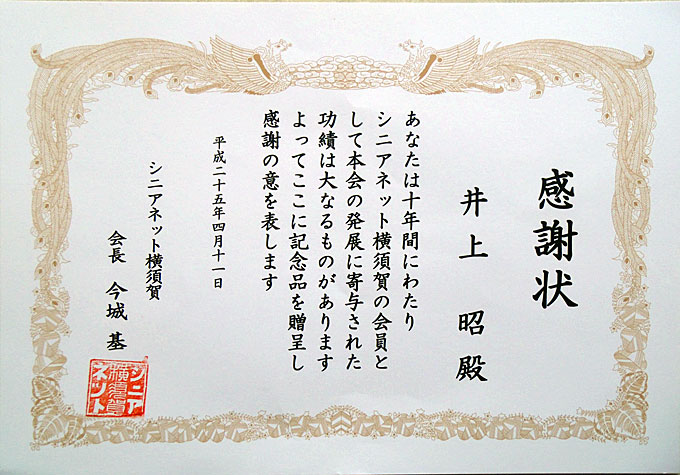 感謝状
井上 昭 殿
あなたは十年間にわたり
シニアネット横須賀の会員と
して本会の発展に寄与された
功績は大なるものがあります
よってここに記念品を贈呈し
感謝の意を表します
平成二十五年四月十一日
シニアネット横須賀
会長 今城 基
シニア
横須賀
ネット